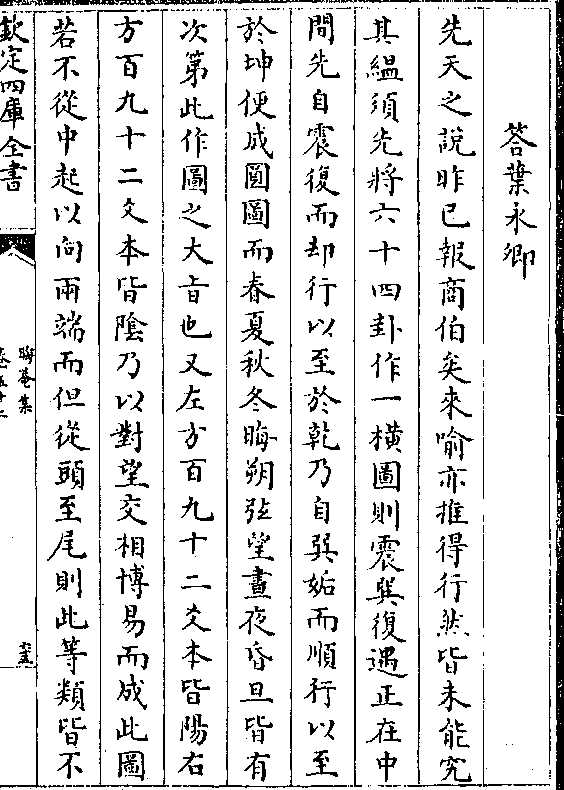 答葉永卿
先天之說昨已報商伯矣來喻亦推得行然皆未能究
其緼須先將六十四卦作一橫圖則震巽復遇正在中
間先自震復而却行以至於乾乃自巽姤而順行以至
於坤便成圓圖而春夏秋冬晦朔弦望晝夜昏旦皆有
次第此作圖之大旨也又左方百九十二爻本皆陽右
方百九十二爻本皆陰乃以對望交相博易而成此圖
若不從中起以向兩端而但從頭至尾則此等類皆不
欽定四庫全書
晦菴集
卷五十二